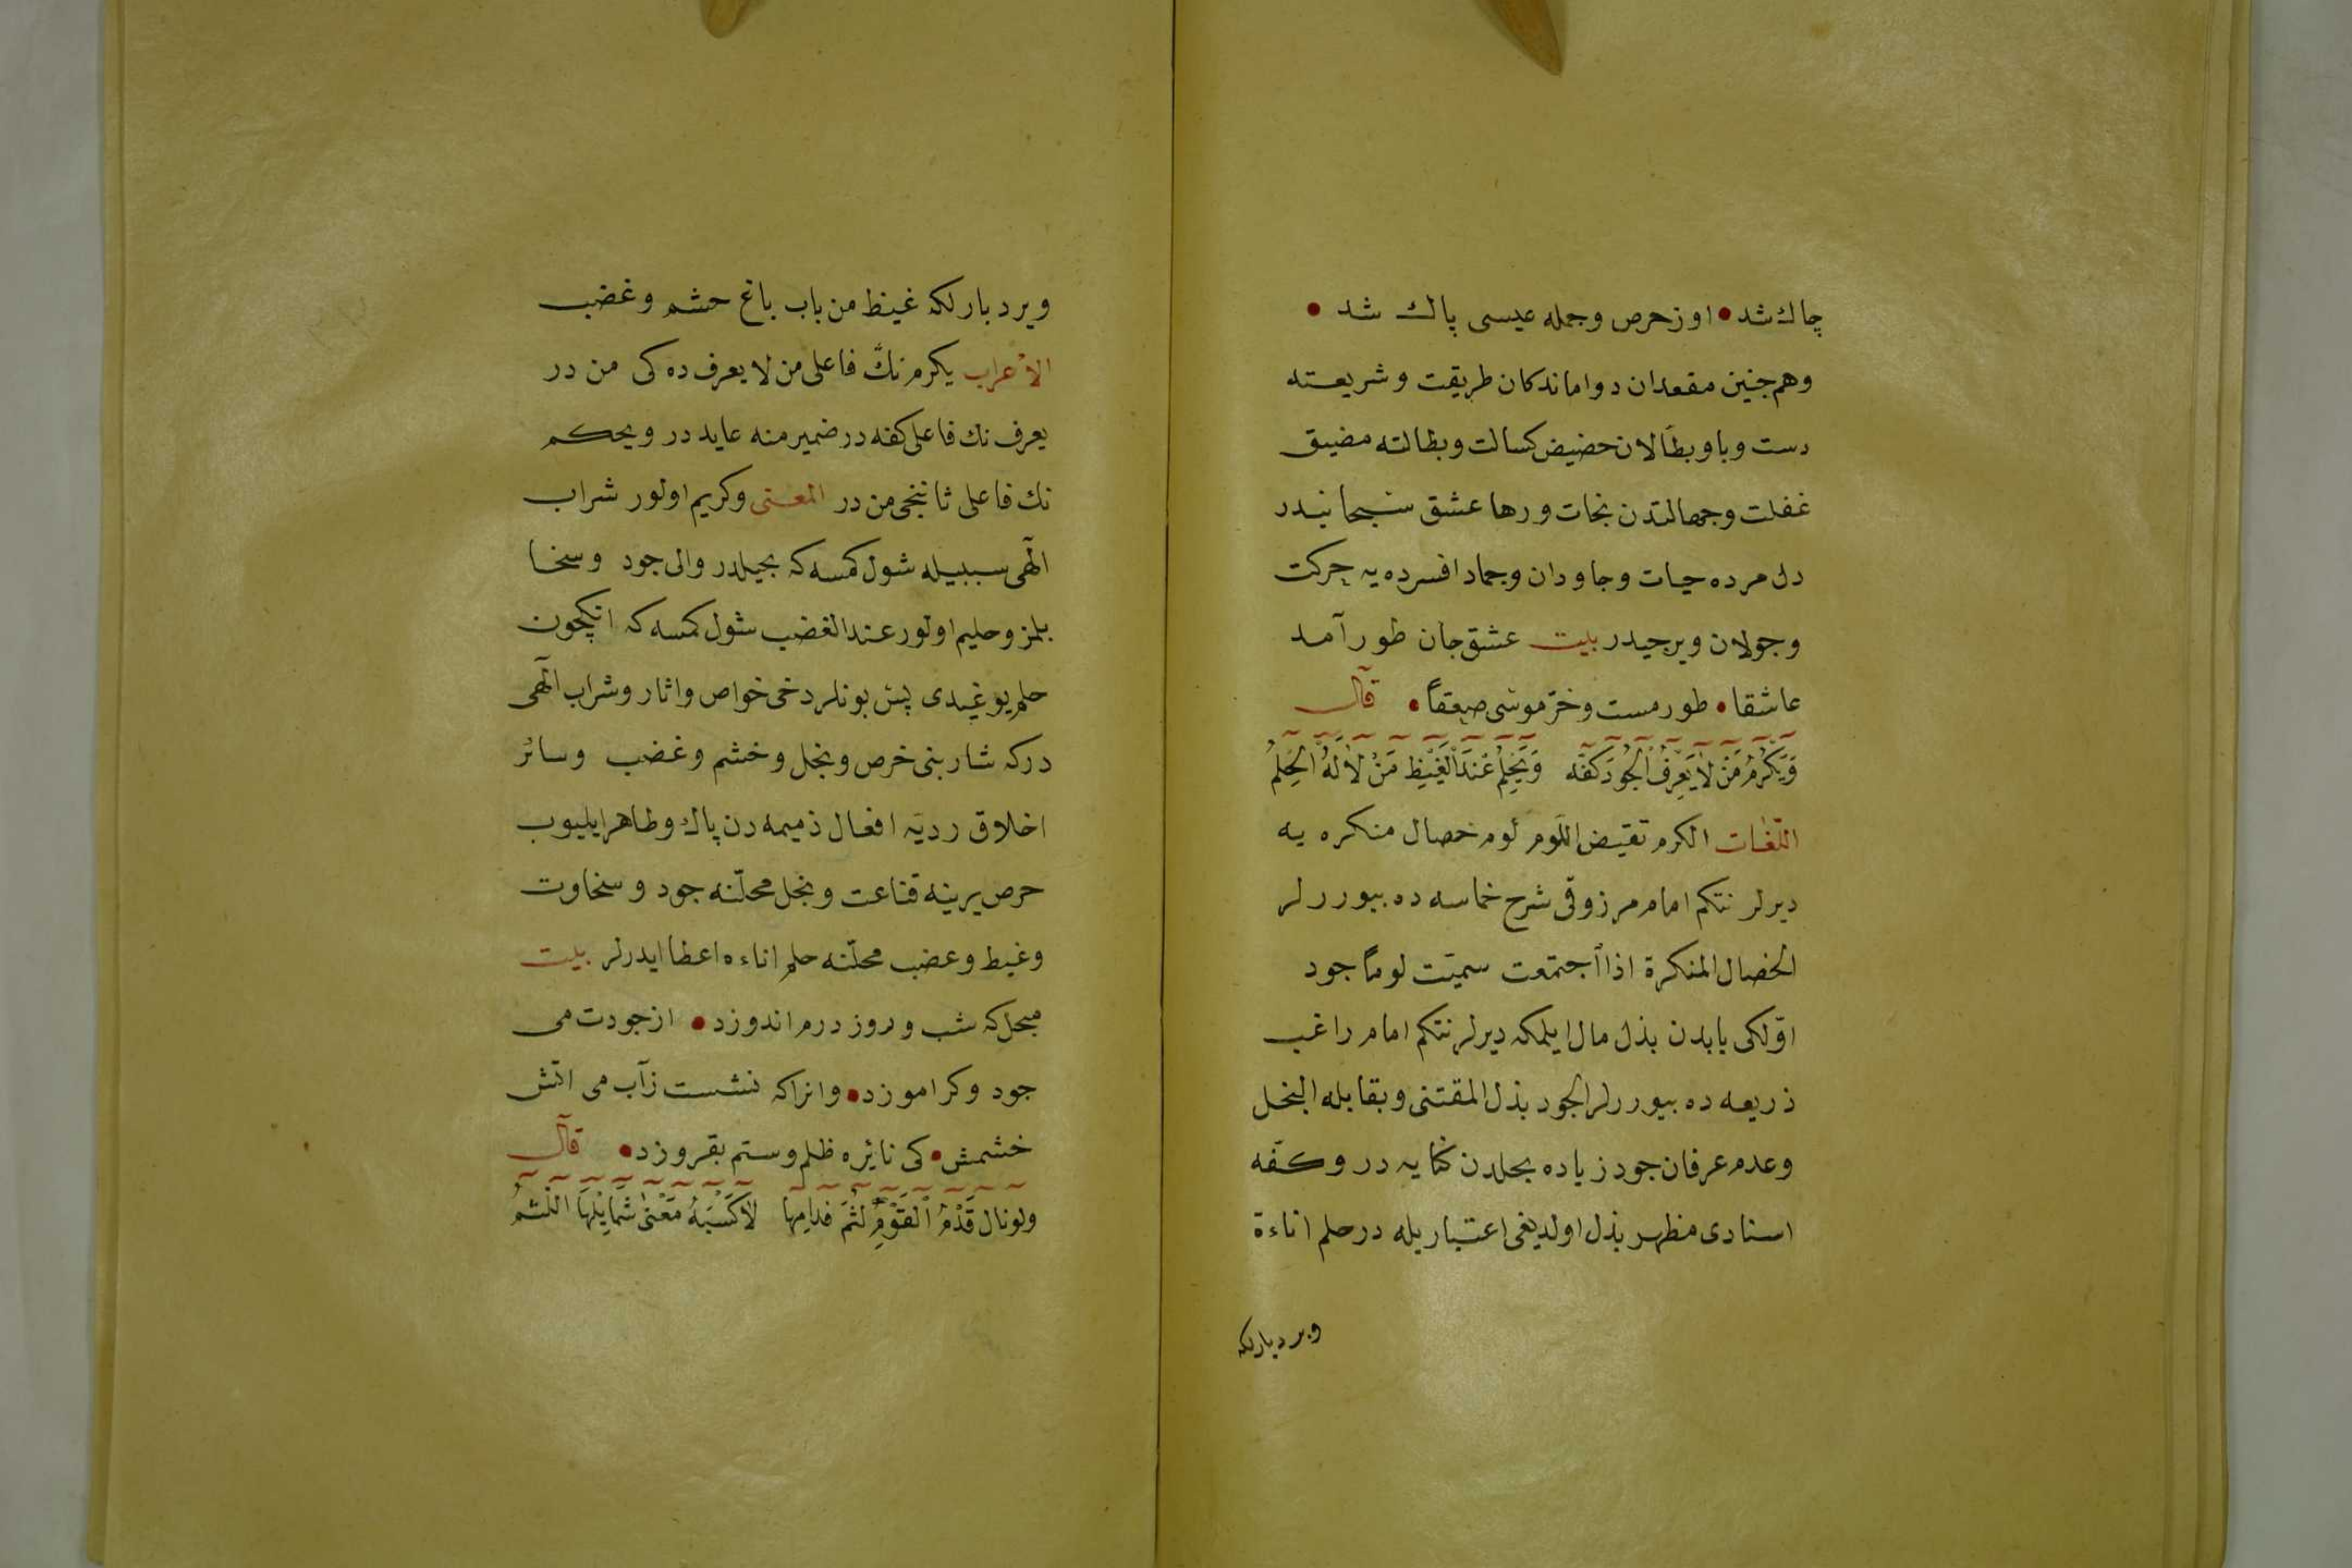 چاك شد • او ز حرص وجمله عيسى پاك شد •
وهم جنين مقعدان دواماندكان طريقت وشريعته
دست وپا وبطّالان حضيض كسالت وبطالته مضيق
غفلت وجهالتدن نجات ورها عشق سبحانيدر
دل مرده حيات وجاودان وجماد افسرده يه حركت
وجولان ويرجيدر بيت عشق جان طور آمد
عاشقا • طور مست وخرّ موسى صعقاً • قال
وَيَكْرُمُ مَنْ لاَ يَعْرِفُ الْجُودَ كَفُّه وَيَحْلُمُ عِنْدَ الْغَيْظِ مَنْ لاَ لَهُ الْحِلْمُ
اللّغات الكرم نقيض اللّوم لوم خصال منكره يه
ديرلر نتكم امام مرزوقى شرح خماسه ده بيوررلر
الخصال المنكرة اذا اجتمعت سميّت لوماً جود
اوّلكى بابدن بذل مال ايلمكه ديرلر نتكم امام راغب
ذريعه ده بيوررلر الجود بذل المقتنى ويقابله البخل
وعدم عرفان جود زياده بخلدن كنايه در وكفّه
اسنادى مظهر بذل اولديغى اعتباريله در حلم اناءة
وبردبارلكه
وبردبارلكه غيظ من باب باع حشم وغضب
الاعراب يكرم نكّ فاعلى من لا يعرف ده كى من در
يعرف نك فاعلى كفه در ضمير منه عايد در ويحكم
نك فاعلى ثاننجى من در المعنى وكريم اولور شراب
الٓهى سببيله شول كمسه كه بخيلدر والى جود وسخا
بلمز وحليم اولور عند الغضب شول كمسه كه انكچون
حلم يوغيدى پس بونلر دخى خواص واثار وشراب الٓهى
دركه شاربنى خرص وبخل وخشم وغضب وسائر
اخلاق رديّه افعال ذميمه دن پاك وطاهر ايليوب
حرص يرينه قناعت وبخل محلّنه جود وسخاوت
وغيط وعضب محلّنه حلم اناءه اعطا ايدرلر بيت
مبحل كه شب وروز درم اندوزد • از جودت مى
جود وكر اموزد • وانراكه نشست زآب مى اتش
خشمش • كى نائره ظلم وستم بقروزد • قال
ولونال قَدْمُ الْقَوْمِ لَثْمَ فِدَامِهَا لاَكْسَبَهُ مَعْنَى شَمَايْلِهَا اللَّثْمُ